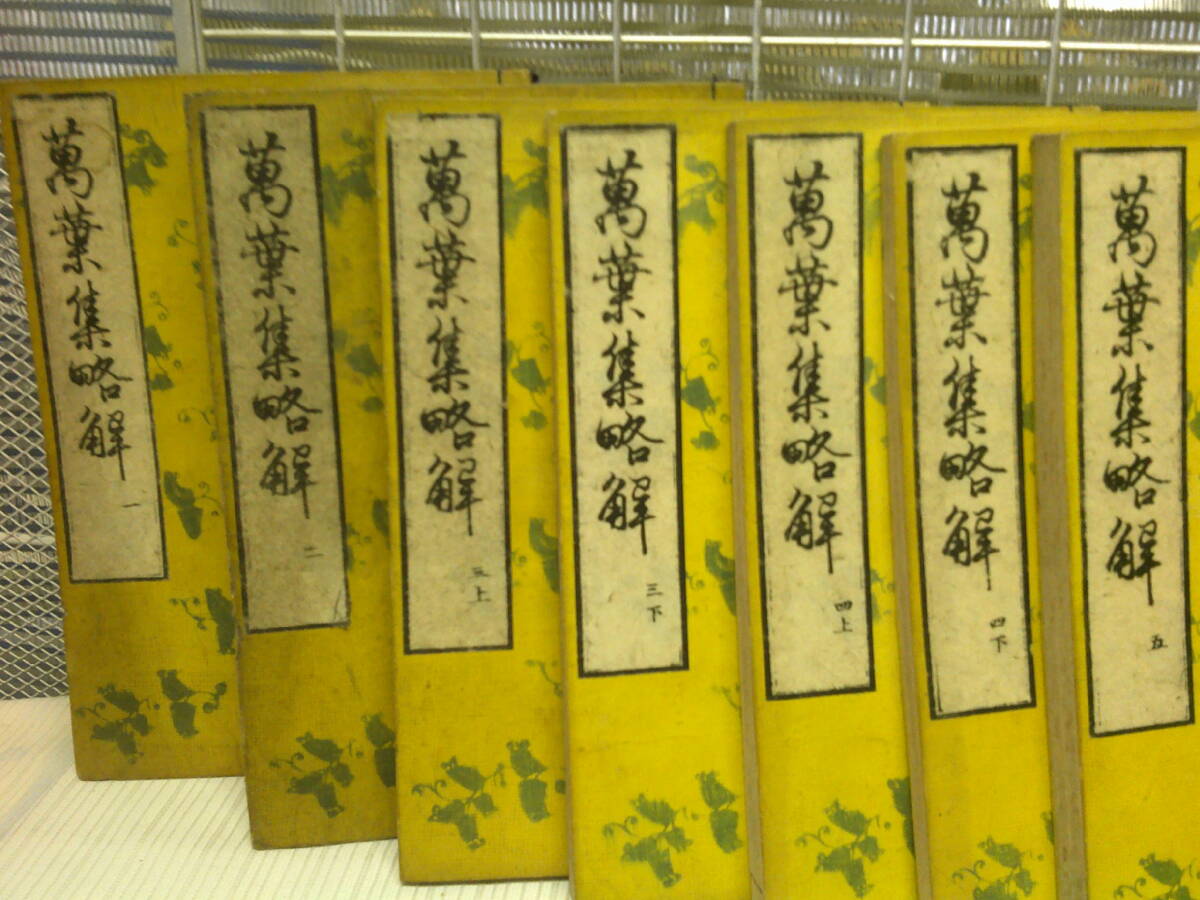 萬葉集略解 一
萬葉集略解 二
萬葉集略解 三上
萬葉集略解 三下
萬葉集略解 四上
萬葉集略解 四下
萬葉集略解 五